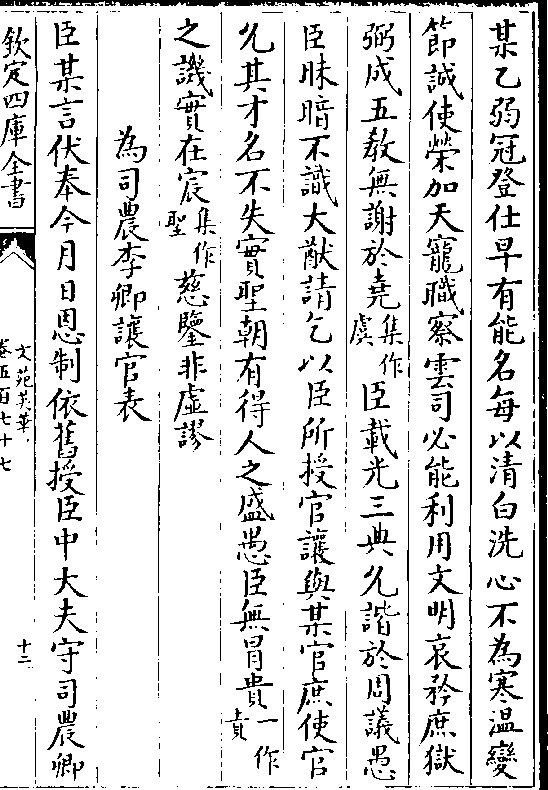 某乙弱冠登仕早有能名每以清白洗心不為寒温變
節誠使榮加天寵職察雲司必能利用文明哀矜庶獄
弼成五教無謝於堯集作虞臣載光三典允諧於周議愚
臣昧暗不識大猷請乞以臣所授官讓與某官庶使官
允其才名不失實聖朝有得人之盛愚臣無冐貴一作責
之譏實在宸集作聖慈鑒非虛謬
為司農李卿讓官表
臣某言伏奉今月日恩制依舊授臣中大夫守司農卿
欽定四庫全書
文苑英華
卷五百七十七
十二